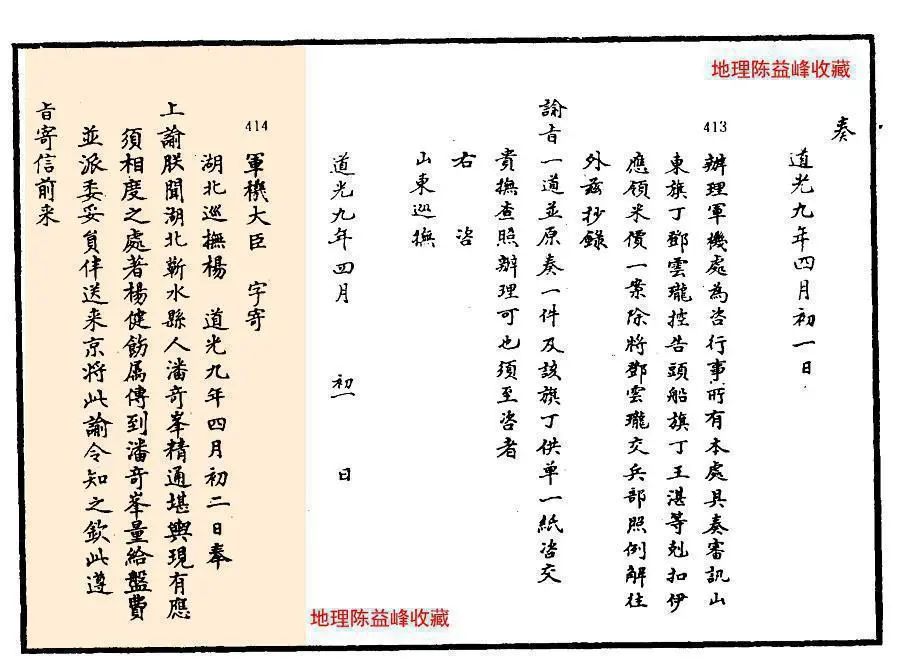 地理陈益峰收藏
奏
道光九年四月初一日
413
辦理軍機處為咨行事所有本處具奏審訊山
東旗丁鄧雲瓏控告頭船旗丁王湛等剋扣伊
應領米價一案除將鄧雲瓏交兵部照例解往
外茲抄錄
諭旨一道並原奏一件及該旗丁供单一紙咨交
貴撫查照辦理可也須至咨者
右咨
山東巡撫
道光九年四月初一日
414
軍機大臣 字寄
湖北巡撫楊 道光九年四月初二日奉
上諭朕聞湖北蘄水縣人潘竒峯精通堪輿現有應
須相度之處著楊健飭属傳到潘竒峯量給盤費
並派委妥負伴送来京將此諭令知之欽此遵
旨寄信前来
地理陈益峰收藏